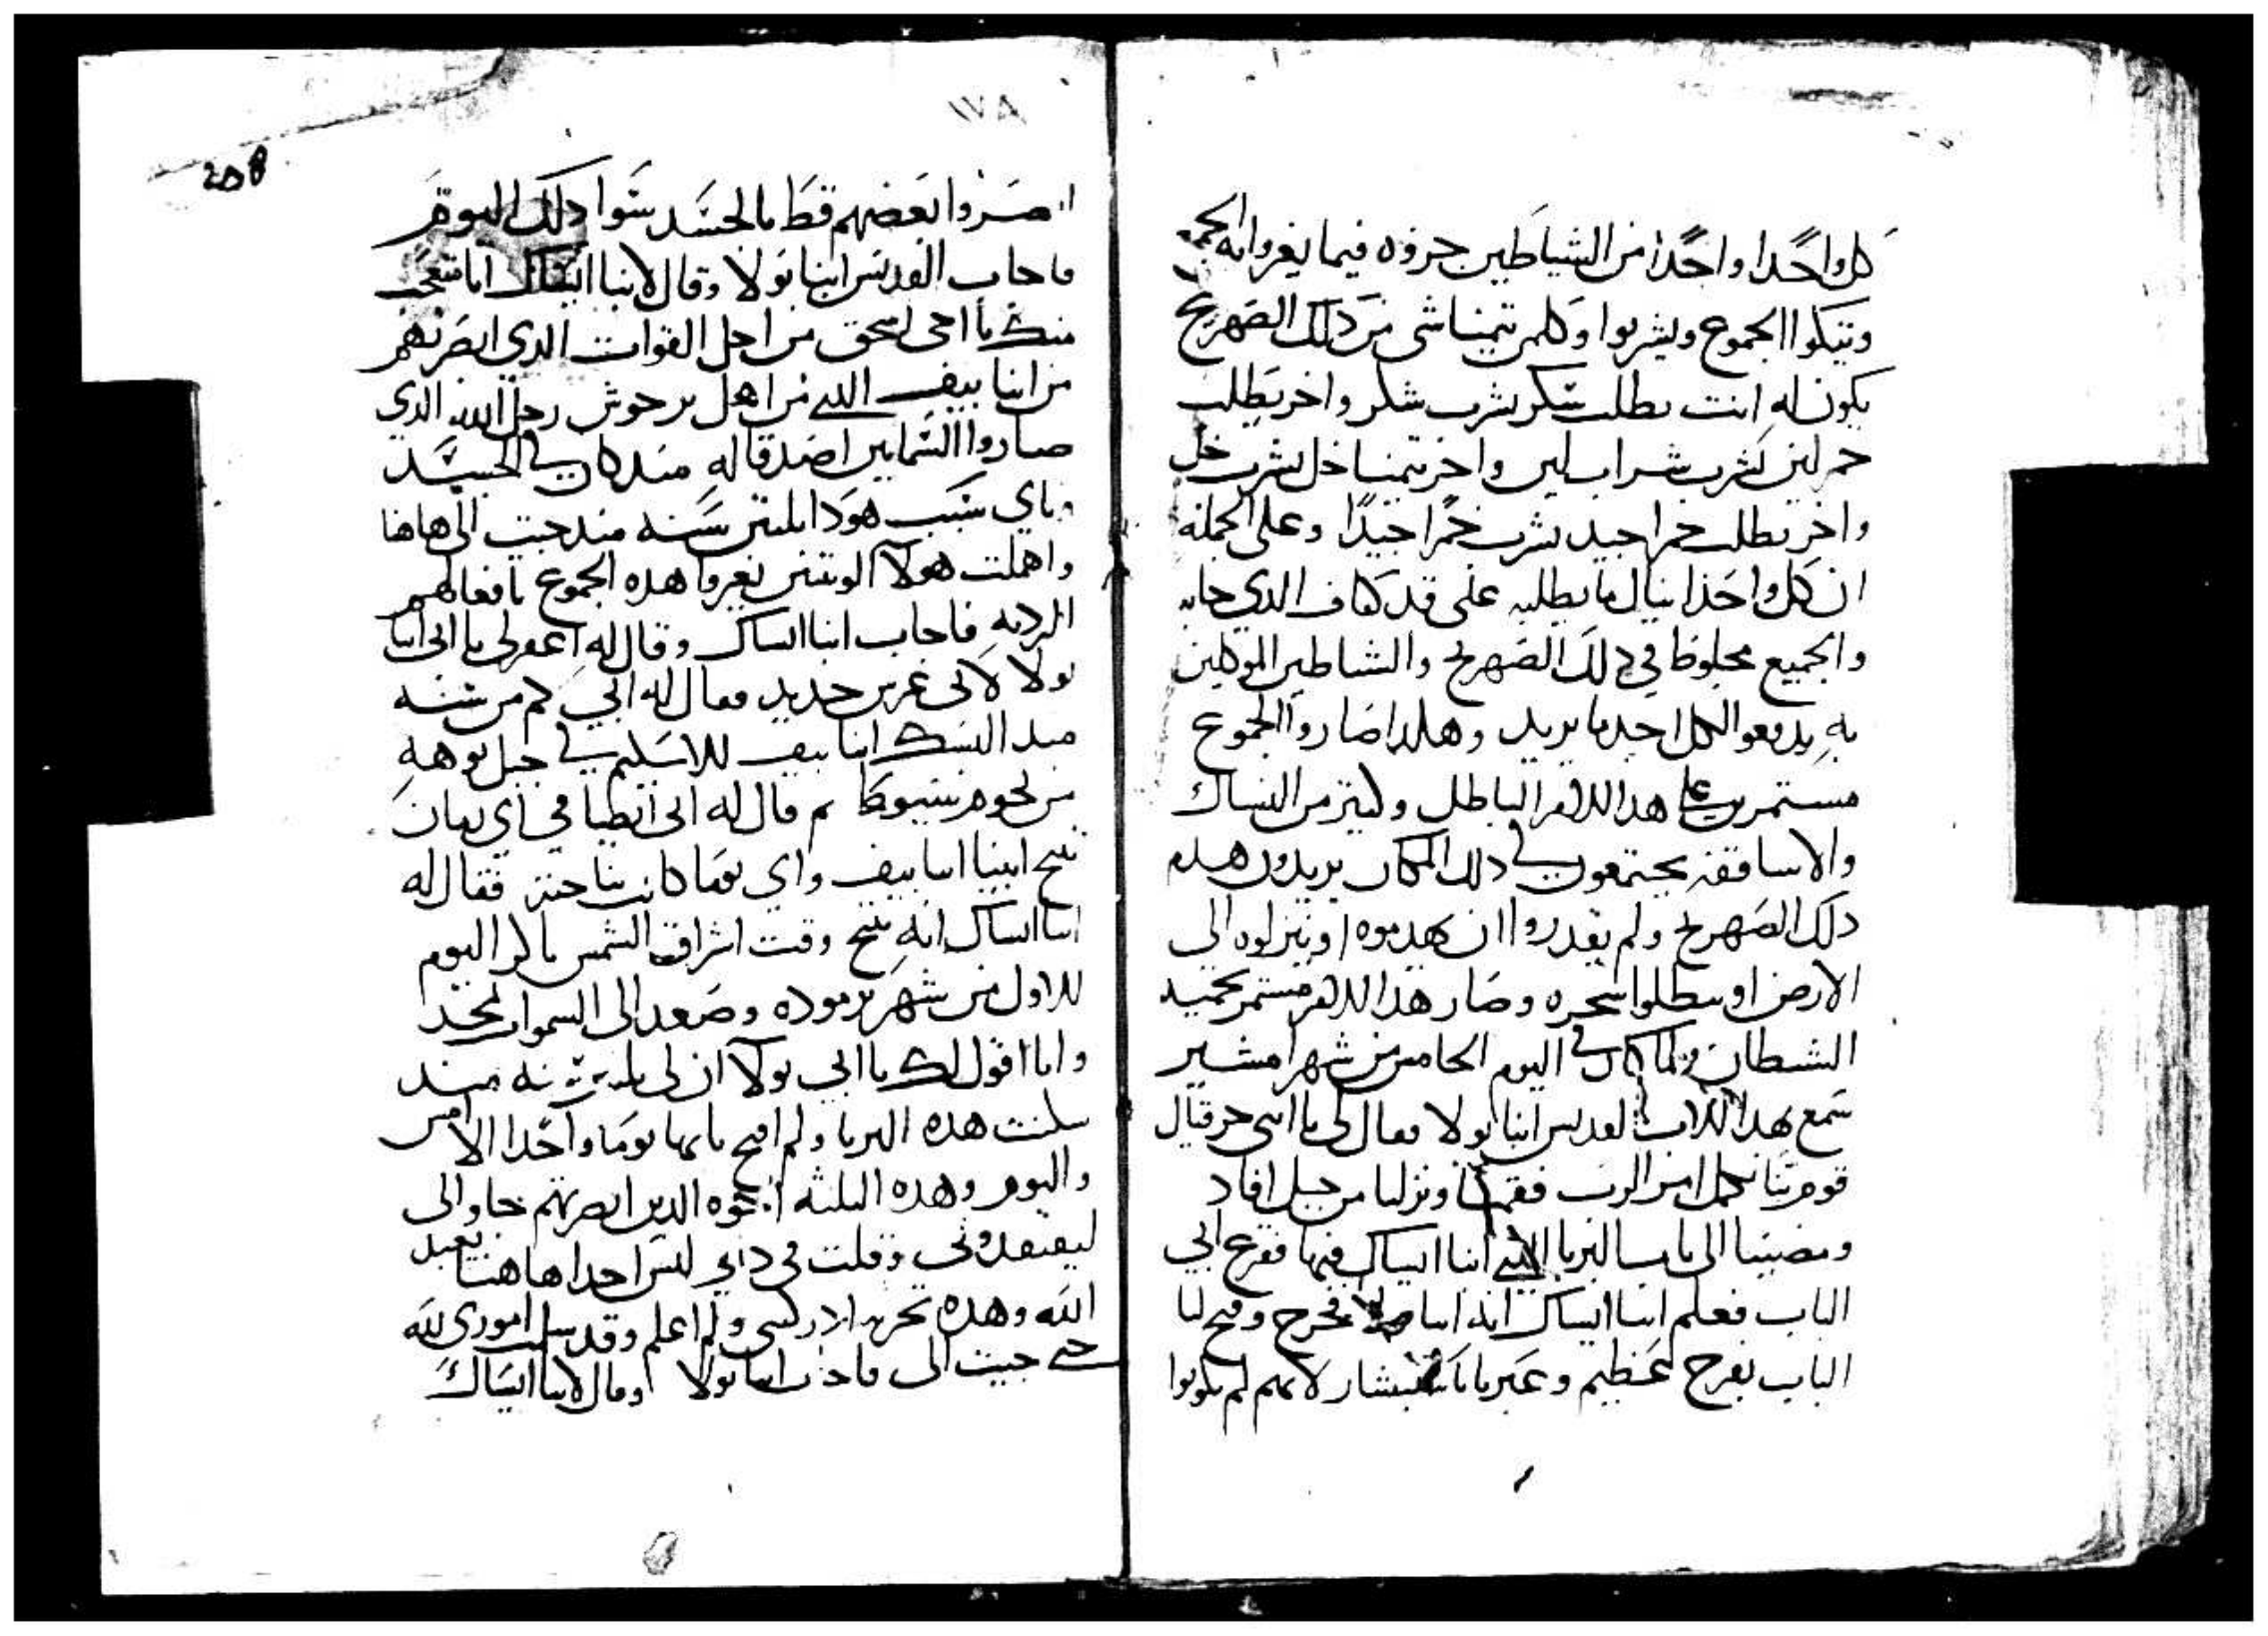 كل واحدا واحدا من الشياطين حرفوه فيما يغروا به الجمع
وتيكلوا الجموع ويشربوا وكلمن يتمنا شي من ذلك الصهريج
يكون له انت يطلب سكر يشرب سكر واخر يطلب
خمر لبن يشرب شراب لبن واخر يتمنا خل يشرب خل
واخر يطلب خمرا جيد يشرب خمرا جيدا وعلى الجمله
ان كل واحدا ينال ما يطلبه على قد الذي جابه
والجميع مخلوط في ذلك الصهريج والشياطين الموكلين
به يدفعوا لكل احد ما يريد وهكدا صاروا الجموع
مستمرين على هدا الامر الباطل وكتير من النساك
والاساقفه يجتمعون في دلك المكان يريدون هدم
دلك الصهريج ولم يقدروا ان يهدموه او ينزلوه الى
الارض او يبطلوا سحره وصار هدا الامر مستمر بحميه
الشيطان ولما كان في اليوم الخامس من شهر امشير
سمع بهدا القديس انبا بولا فقال لي يا ابني حزقيال
قوم بنا نكمل امر الرب فقمنا ونزلنا من جبل افاد
ومضينا الى باب البربا الدي انبا ايساك فيها فقرع ابي
الباب فعلم انبا ايساك انه انبا بولا فخرج وفتح لنا
الباب بفرح عظيم وعبرنا باستبشار لانهم لم يكونوا
١٧٨
208
ابصروا بعضهم قط بالجسد سوا دلك اليوم
فاجاب القديس انبا بولا وقال لانبا ايساك انا متعجب
منك يا اخي اسحق من اجل القوات الدي ابصرتهم
من انبا بيف الدي من اهل برحوش رجل الله الدي
صاروا السمايين اصدقا له مند كان في الجسد
وباي سبب هودا تلتين سنه مند جيت الى هاهنا
واهملت هولا الوتنين يغروا هده الجموع بافعالهم
الرديه فاجاب انبا ايساك وقال له اغفر لي يا ابي انبا
بولا لاني غرس جديد فقال له ابي كم من سنه
مند البسك انبا بيف للاسكيم في جبل بوهه
من تخوم سيوط ثم قال له ابي ايضا في اي زمان
تنيح ابينا انبا بيف واي يوما كانت نياحته فقال له
انبا ايساك انه تنيح وقت اشراق الشمس باكر اليوم
الاول من شهر برموده وصعد الى السموات بمجد
وانا اقول لك يا ابي بولا ان لي تلتين سنه مند
سكنت هده البربا ولم افتح بابها يوما واحدا الا امس
واليوم وهده التلته اخوه الدين ابصرتهم جاوا الى
ليفتقدوني وقلت في داتي ليس احدا هاهنا يعبد
الله وهده تحزبه الاركسي ولم اعلم وقد سلمت اموري لله
حتى جيت الى فاجاب انبا بولا وقال لانبا ايساك